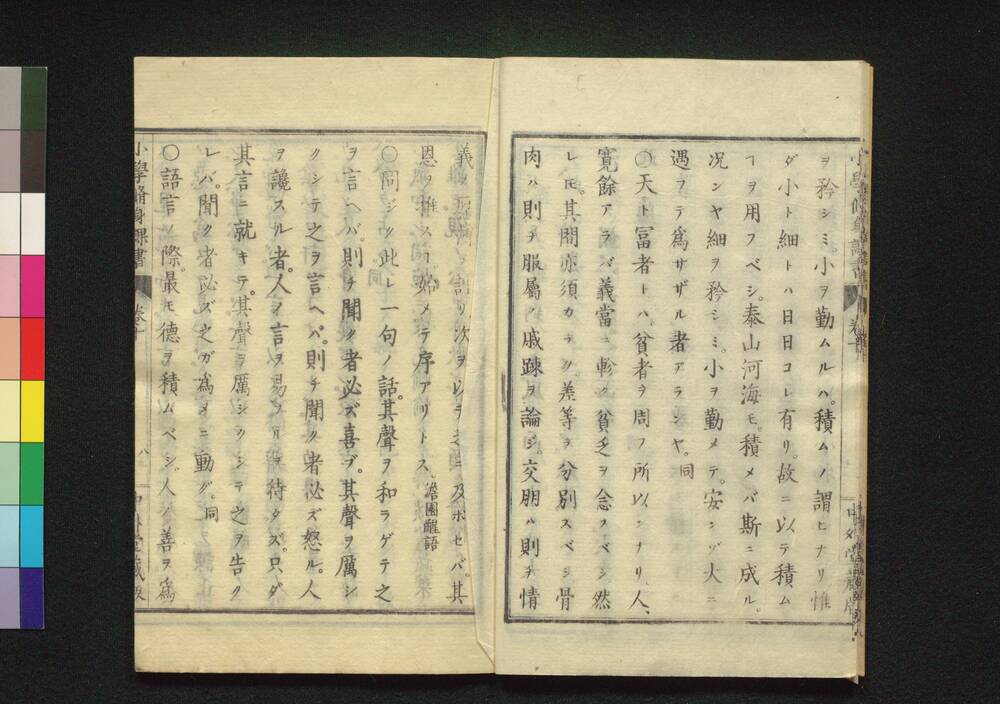 ヲ矜シミ。小ヲ勤ムルハ。積ムノ謂ヒナリ惟
ダ小ト細トハ日日コレ有リ。故ニ以テ積ム
ヿヲ用フベシ。泰山河海モ。積メバ斯ニ成ル。
况ンヤ細ヲ矜シミ、小ヲ勤メテ。安ンゾ大ニ
遇フテ為サザル者アランヤ。同
〇天ト富者トハ。貧者ヲ周フ所以ンナリ人、
寛餘アラバ義當ニ軫ク貧乏ヲ念フベシ然
レ𪜈。其間亦須カラク。差等ヲ分別スベシ骨
肉ハ則チ服屬ノ戚踈ヲ論ジ。交朋ハ則チ情
義ノ ヲ割リ次ヲ以テミニ及ボセバ。其
恩ヲ推ス 始メテ序アリトス。澹圃醒語
〇同ジク此レ一句ノ話。其聲ヲ和ラゲテ之
ヲ言ヘバ。則チ聞ク者必ズ喜ブ。其聲ヲ厲シ
クシテ之ヲ言ヘバ。則チ聞ク者必ズ怒ル。人
ヲ讒スル者。人ノ言ヲ易フルヲ待タズ。只ダ
其言ニ就キテ。其聲ヲ厲シクシテ之ヲ告ク
レバ。聞ク者必ズ之ガ為メニ動グ。同
〇語言ノ際。最モ德ヲ積ムベシ。人ノ善ヲ為
小學脩身課書 卷十